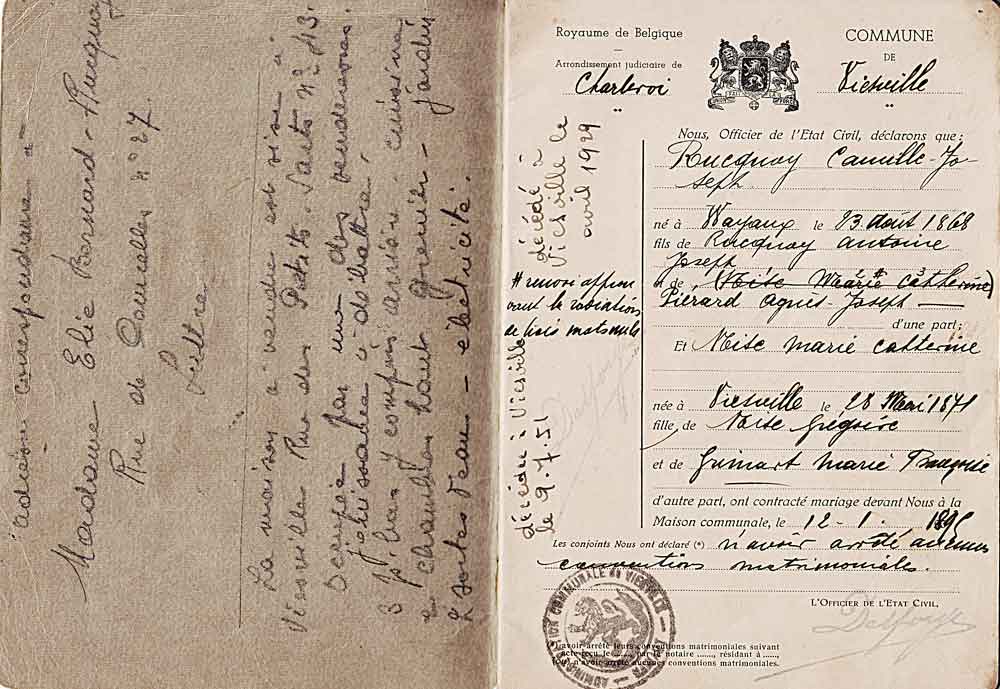 adresse correspondance =
Madame Elie Bernard-Rucquoy
Rue de Courcelles n° 27
Luttre
La maison à vendre est sise à
Viesville Rue des Petits Sarts n° 13.
occupée par un des vendeurs
jouissance à débattre.
3 p. bas y compris arrière cuisine
chambres haut grenier - jardin
2 sortes d'eau - électricité.
Royaume de Belgique
Arrondissement judiciaire de
Charleroi
COMMUNE
DE
Viesville
Nous, Officier de l'Etat Civil, déclarons que :
Rucquoy Camille-Jo-
seph
né à Wayaux le 23 août 1868
fils de Rucquoy Antoine
Joseph
et de (Mite Marie # Catherine)
Piérard Agnès-Joseph
d'une part;
Et Mite Marie Catherine
née à Viesville le 28 Mai 1871
fille de Mite Grégoire
et de Guinart Marie
d'autre part, ont contracté mariage devant Nous à la
Maison communale, le 12-1. 1895
Les conjoints Nous ont déclaré (*) n'avoir arrêté aucunes
conventions matrimoniales.
L'OFFICIER DE L'ETAT CIVIL,
décédé à
Viesville le
avril 1929
# renvoi approu
vant la radiation
de trois mots nuls
décédée à Viesville
le 9.7.51
ADMINISTRATION COMMUNALE DE VIESVILLE
avoir arrêté leurs conventions matrimoniales suivant
acte reçu le ...... par le notaire ......, résidant à ......,
ou n'avoir arrêté aucunes conventions matrimoniales.